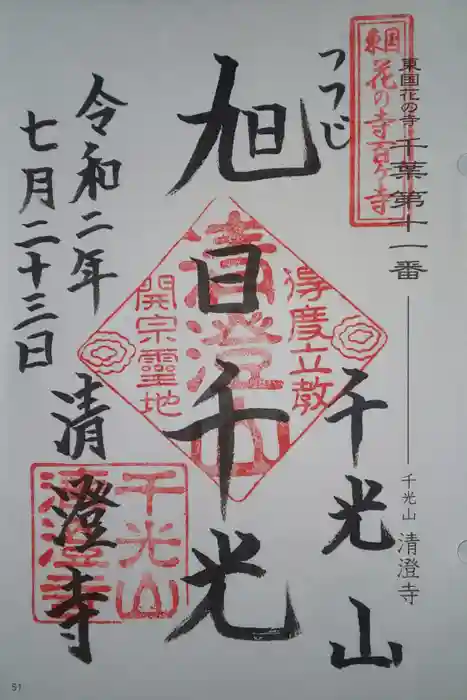 東国花の寺 千葉第十一番
千光山 清澄寺
東国
花の寺百ヶ寺
つつじ
千光山
旭日千光
得度立教
清澄山
開宗靈地
令和二年
七月二十三日
清澄寺
千光山
清澄寺
51